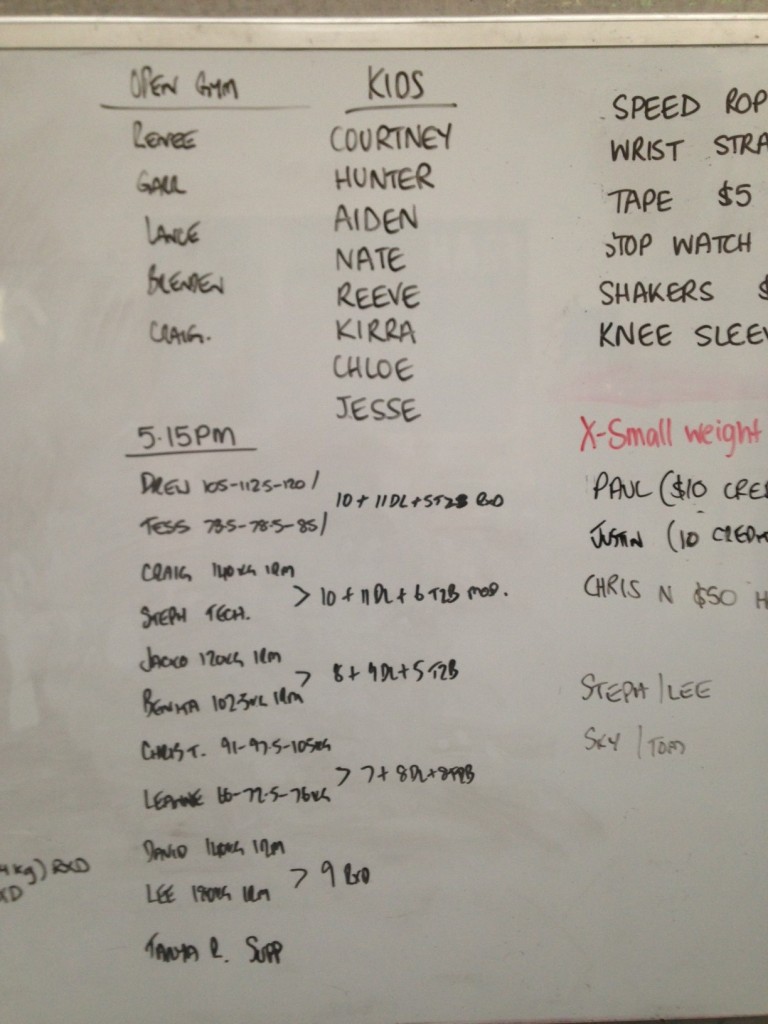 OPEN GYM
RENEE
GARR
LANCE
BRENDEN
CRAIG.
KIDS
COURTNEY
HUNTER
AIDEN
NATE
REEVE
KIRRA
CHLOE
JESSE
SPEED ROP
WRIST STRA
TAPE $5
STOP WATCH
SHAKERS $
KNEE SLEEV
X-Small weight
PAUL ($10 CRED
JUSTIN (10 CREDI
CHRIS N $50 H
STEPH/LEE
SKY/TOM
5.15PM
DREW 105-112.5-120/
TESS 73.5-78.5-85/
10 + 11DL+5T2B RXD
CRAIG 140KG 1RM
STEPH TECH.
> 10 + 11DL + 6 T2B MOD.
JACKO 120KG 1RM
102.5KG 1RM
> 8 + 9DL+5 T2B
CHRIS T. 91-97.5-105KG
LEANNE 66-72.5-76KG
> 7 + 8DL+8T2B
DAVID 140KG 1RM
LEE 1RM
> 9 RXD
TANYA R. SUPP
4kg) RXD
XD